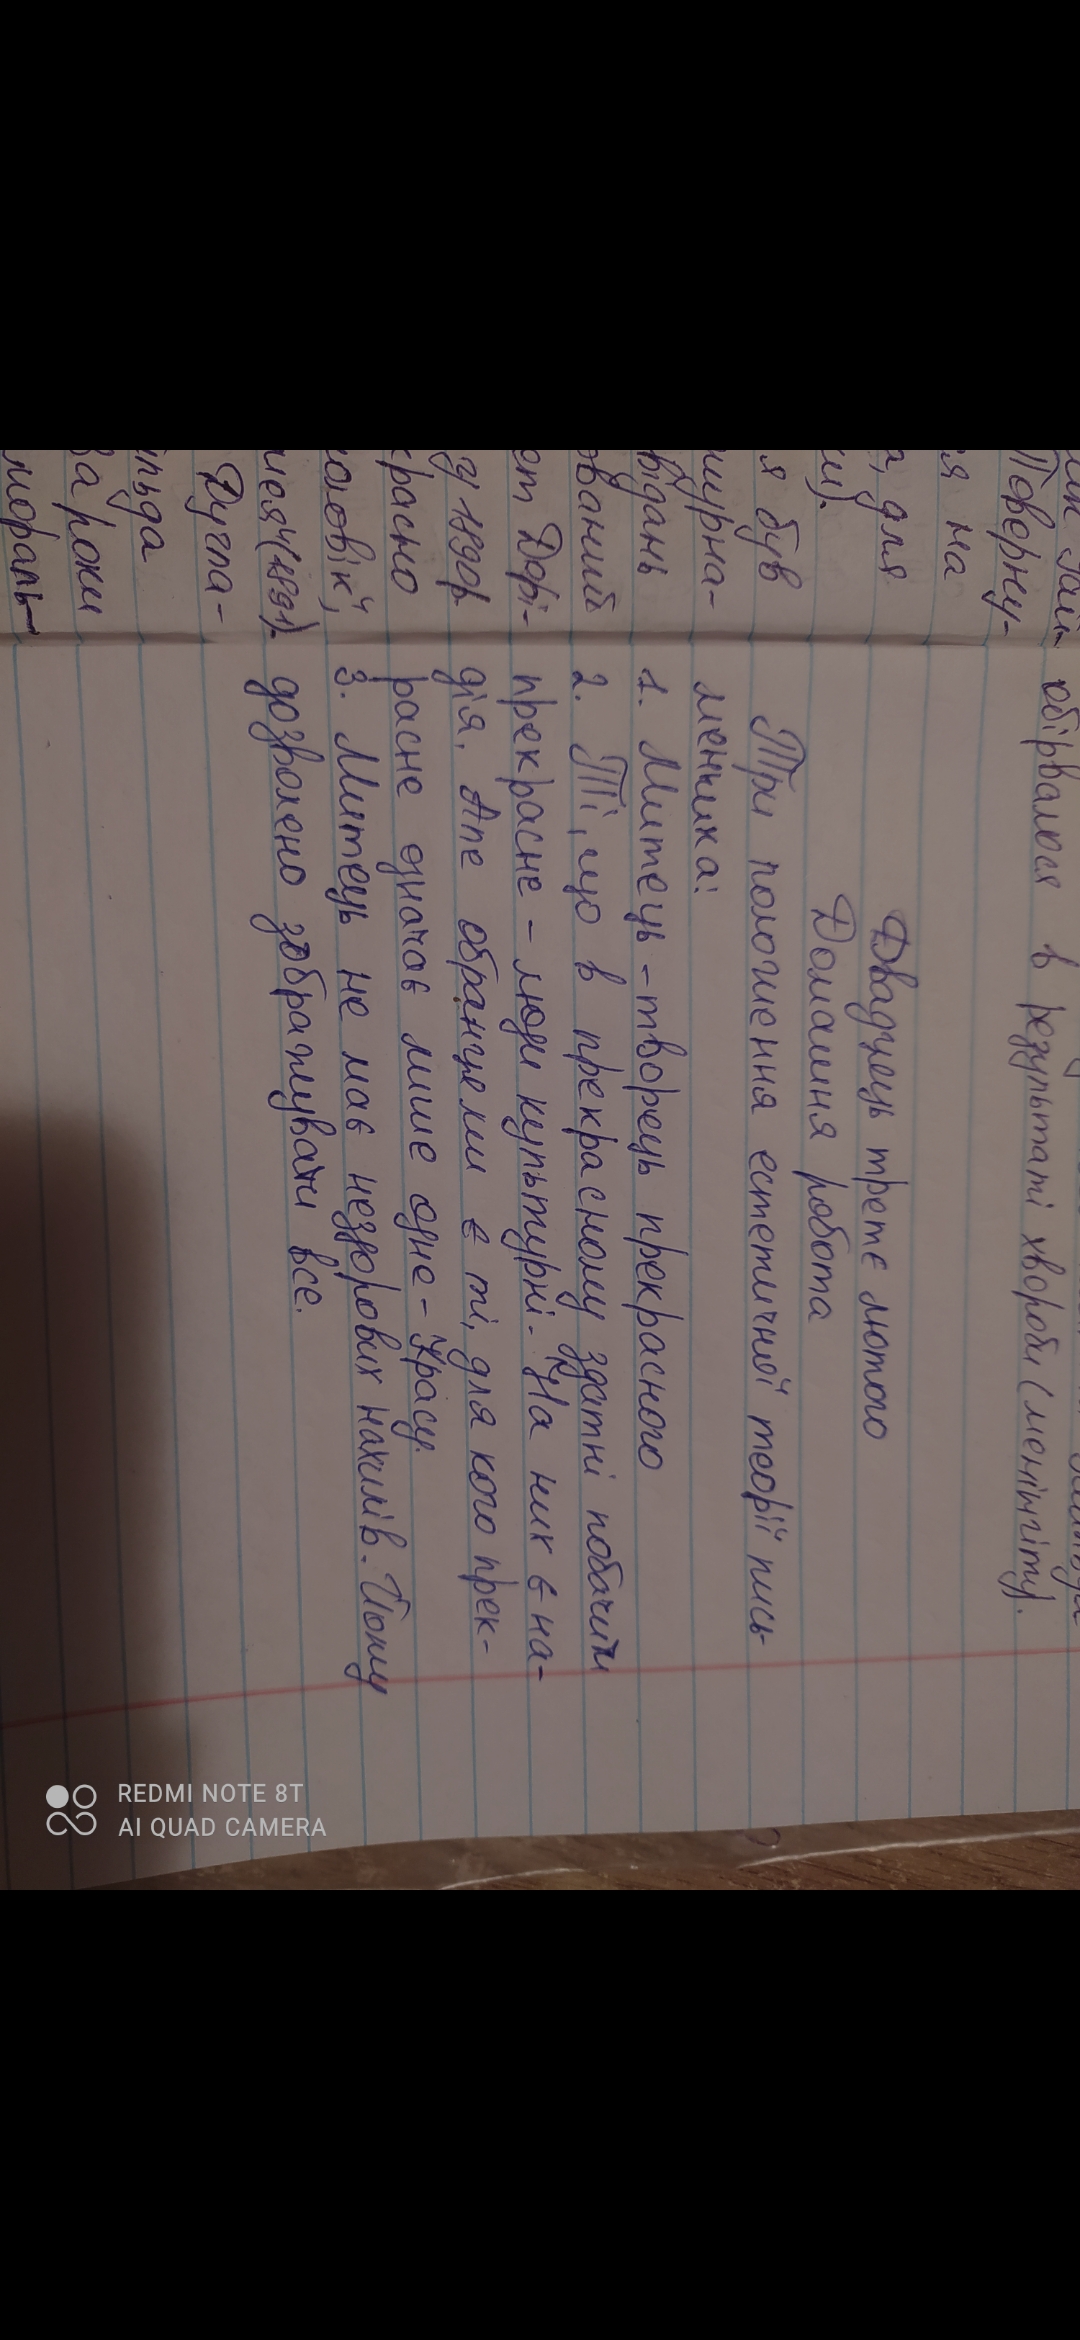 обірвалося в результаті хвороби (менінгіту).
Двадцять третє лютого
Домашня робота
Три положення естетичної теорії пись-
менника:
1. Митець - творець прекрасного
2. Ті, що в прекрасному здатні побачити
прекрасне - люди культурні. На них є на-
дія. Але обранцями є ті, для кого прек-
расне означає лише одне - Красу.
3. Митець не має нездорових нахилів. Йому
дозволено зображувати все.
Поверну-
я на
а, для
ми).
я був
журна-
вдань
ований
ет Дорі-
у 1890р
красно
оловік",
мея" (1891).
Дугла-
льда
ва роки
мораль-
REDMI NOTE 8T
AI QUAD CAMERA